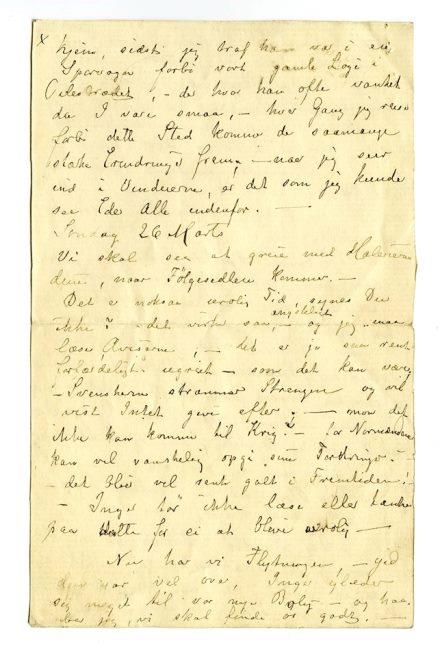 x hjem, sidst jeg traf ham var i en
Sporvogn forbi vort gamle Logi i
, – der hvor han ofte vanket
da I vare smaa, – hver Gang jeg reiser
forbi dette Sted kommer de saamange
Erindringer frem, – naar jeg seer
ind i Vinduerne, er det som jeg kunde
see Eder Alle indenfor. –
Søndag 26 Marts
Vi skal see at greie med Malerierne
dine, naar Følgesedlen kommer. –
Det er noksaa urolig Tid, synes Du
ikke? – det virker saa, engsteligt – og jeg maa
læse Aviserne, – det er jo saa rent
ugreit – som det kan være,
– Svenskerne strammer Strengen og vil
vist Intet give efter, – mon det
ikke kan komme til Krig? – for Normændene
kan vel vanskelig opgi sine Fordringer? –
– det blir vel rent galt i Fremtiden! –
– Inger tør ikke læse eller tænke
paa dette for ei at blive urolig –
Nu har vi Flytningen, – gid
den var vel over, Inger glæder
seg meget til vor nye Bolig – og haa-
ber jeg, vi skal finde os godt. –